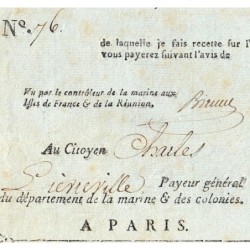 N.º 76.
de laquelle je fais recette sur l'
vous payerez suivant l'avis de
Vu par le contrôleur de la marine aux
Isles de France & de la Réunion.
Au Citoyen Charles
Payeur général
du département de la marine & des colonies.
A PARIS.